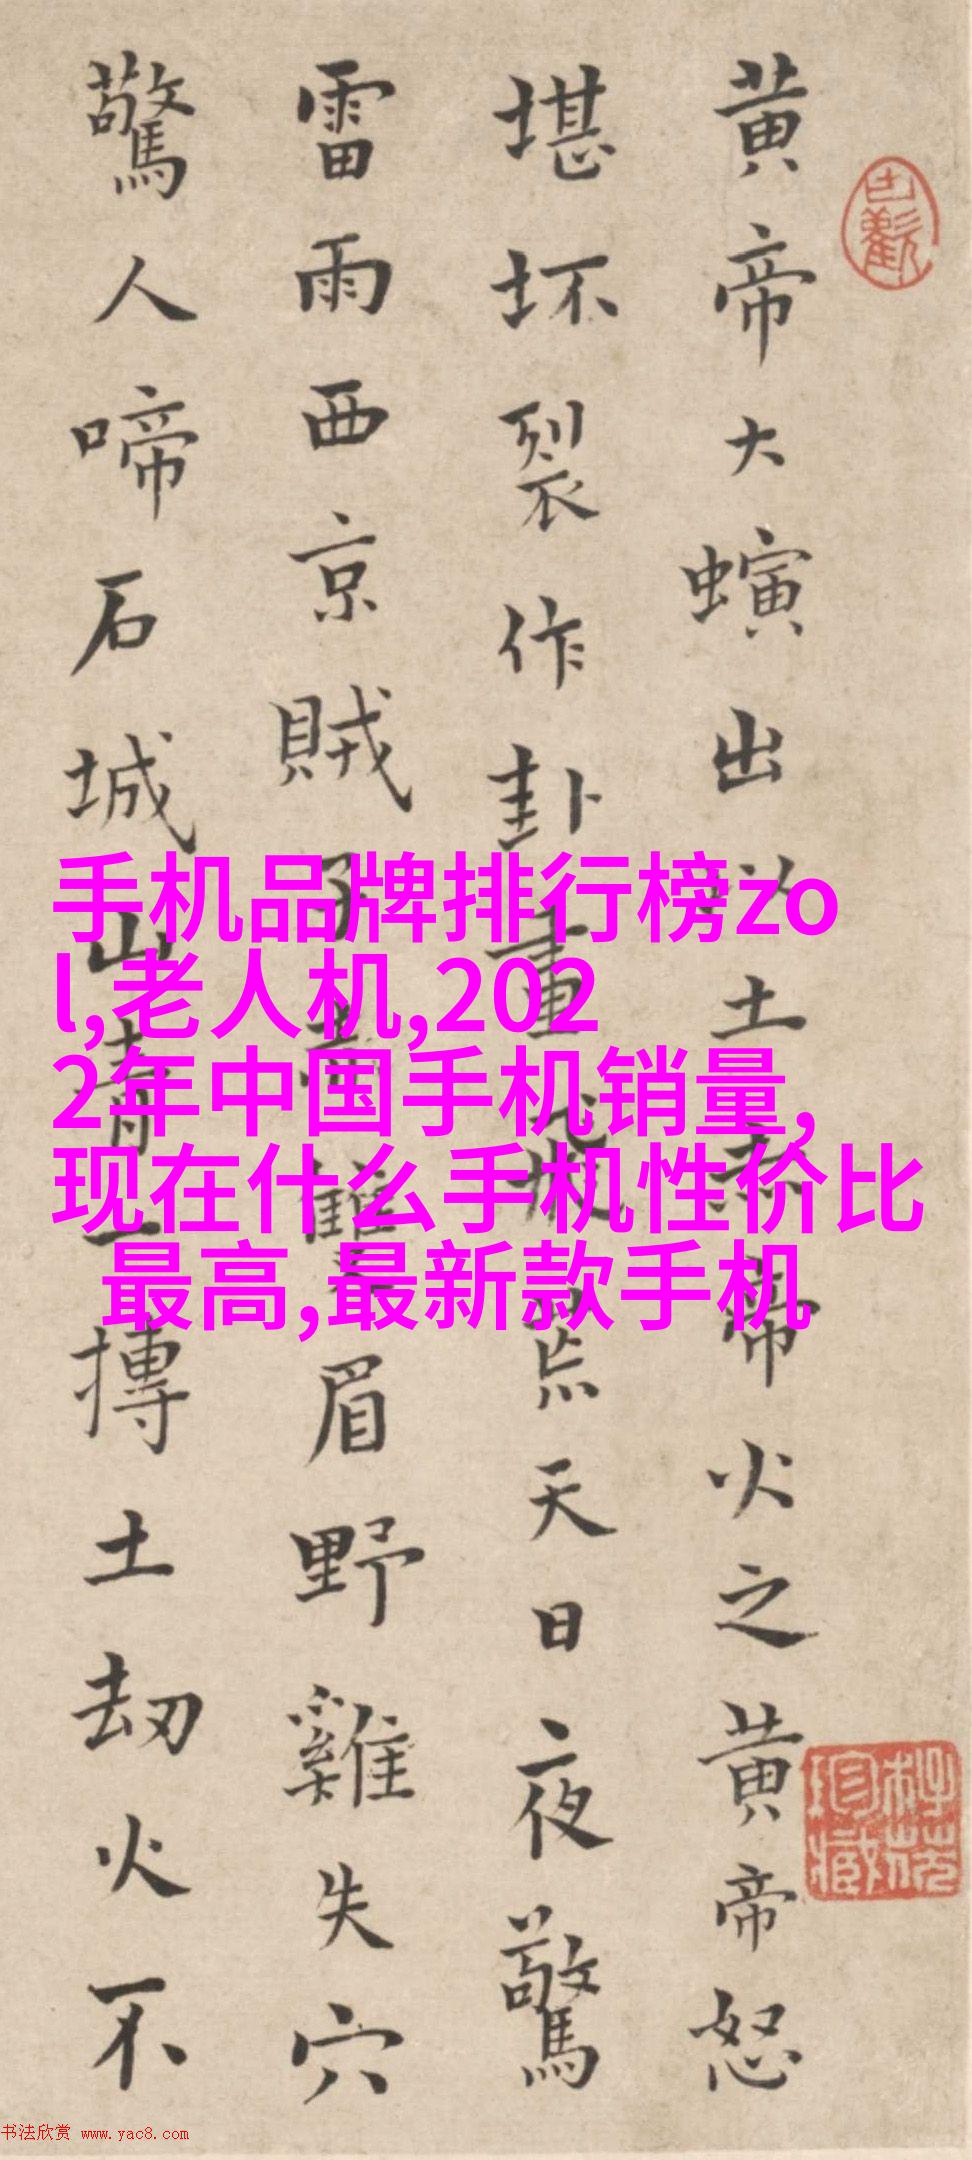 黄帝大螾出以土赤帝火之黄帝怒
堪坏裂作卦畫飛荒天日夜驚
雷雨西京賊子雙眉野雞失穴
驚人啼石城山青一摶土劫火不
手机品牌排行榜zo
l,老人机,202
2年中国手机销量,
现在什么手机性价比
最高,最新款手机
书法欣赏 www.yac8.com